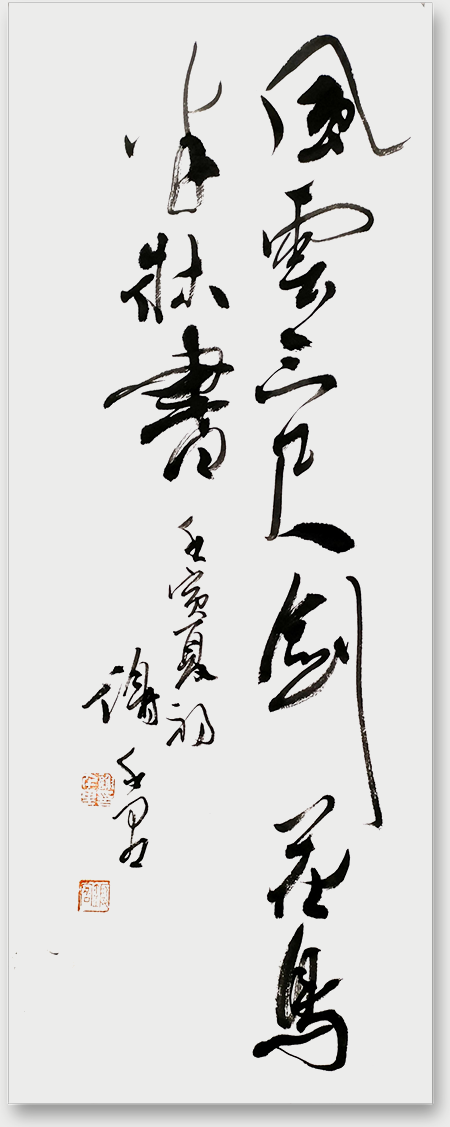 風雲三尺劍花鳥
半牀書
壬寅夏初